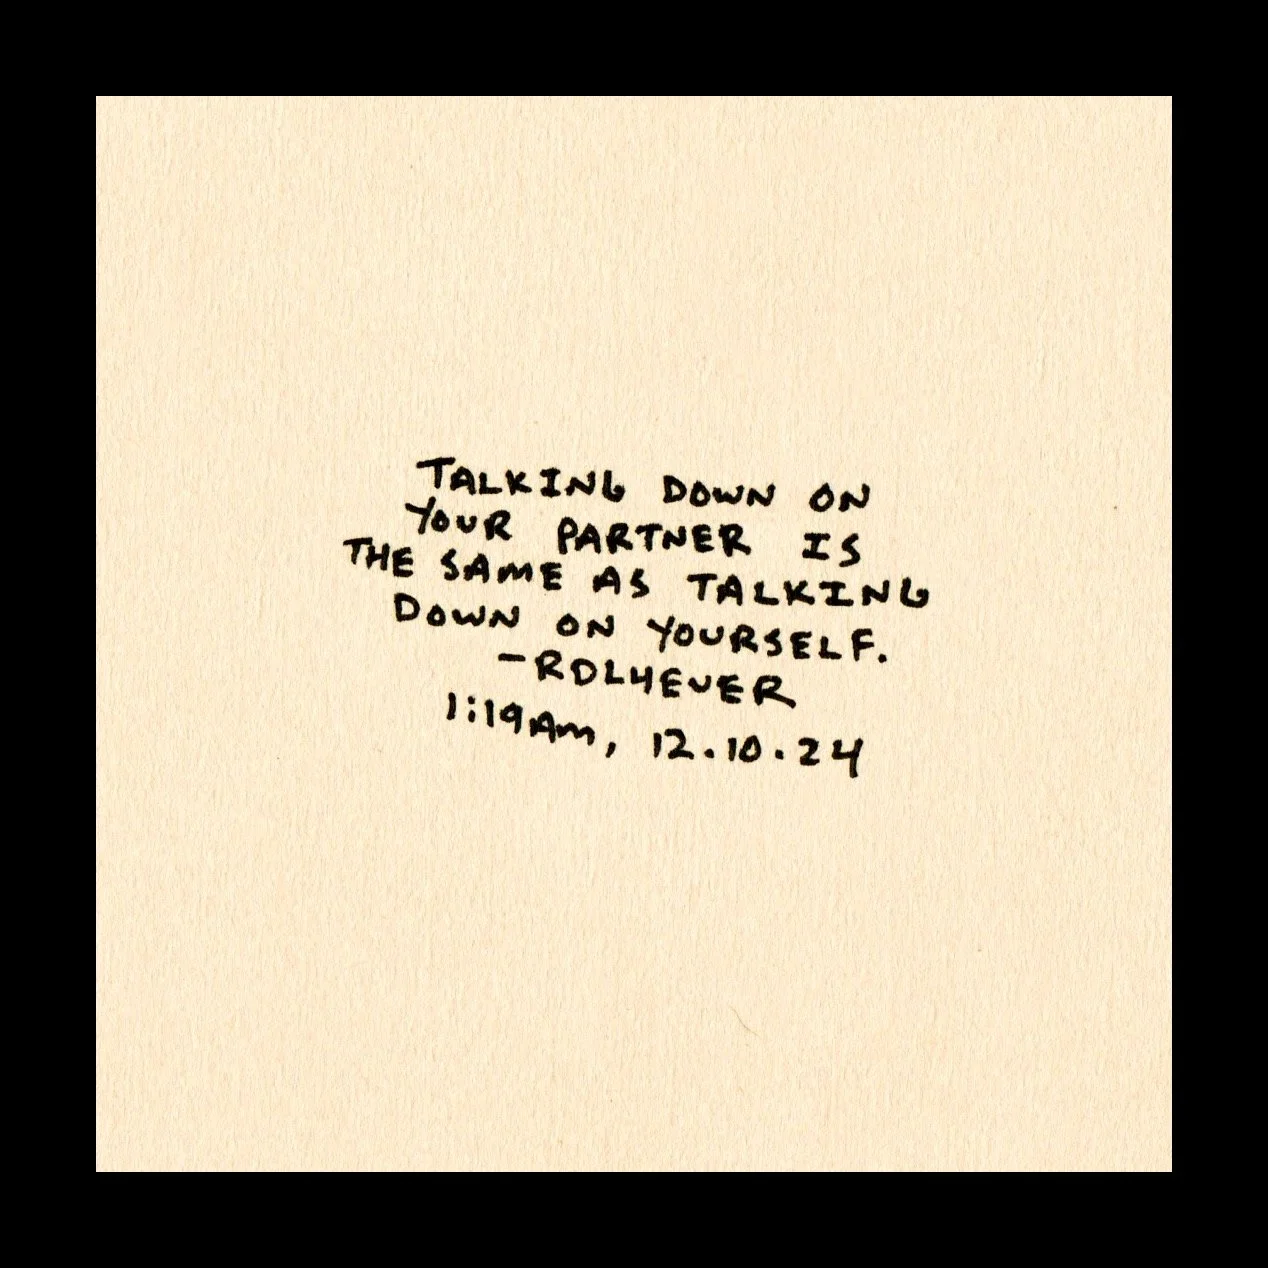 TALKING DOWN ON
YOUR PARTNER IS
THE SAME AS TALKING
DOWN ON YOURSELF.
-RDL4EVER
1:19AM, 12.10.24